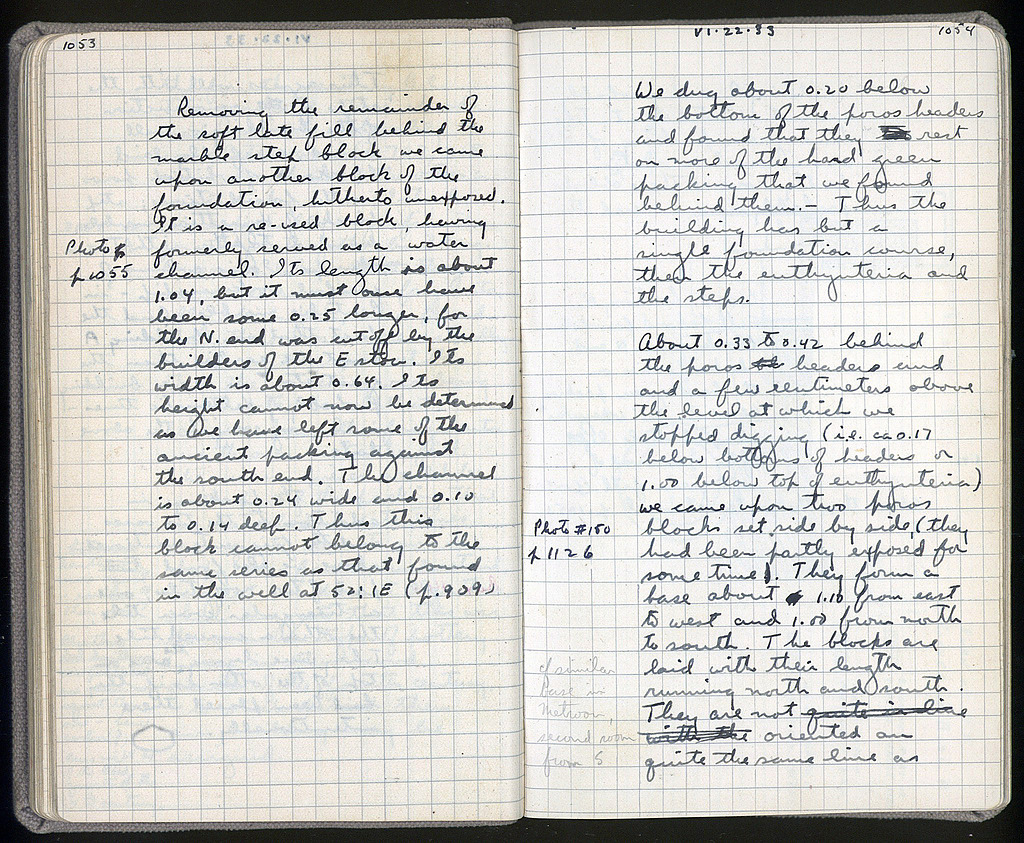 1053
Removing the remainder of
the soft late fill behind the
marble step block we came
upon another block of the
foundation, hitherto unexposed.
It is a re-used block, having
Photo
p 1055
formerly served as a water
channel. Its length is about
1.04, but it must once have
been some 0.25 longer, for
the N. end was cut off by the
builders of the E stoa. Its
width is about 0.64. Its
height cannot now be determined
as we have left some of the
ancient packing against
the south end. The channel
is about 0.24 wide and 0.10
to 0.14 deep. Thus this
block cannot belong to the
same series as that found
in the well at 52:IE (p. 909)
VI·22·33
1054
We dug about 0.20 below
the bottom of the poros headers
and found that they rest
on more of the hard green
packing that we found
behind them. – Thus the
building has but a
single foundation course,
then the euthynteria and
the steps.
About 0.33 to 0.42 behind
the poros headers and
and a few centimeters above
the level at which we
stopped digging (i.e. ca 0.17
below bottoms of headers or
1.00 below top of euthynteria)
we came upon two poros
Photo #150
p 1126
blocks set side by side, (they
had been partly exposed for
some time). They form a
base about 1.10 from east
to west and 1.00 from north
to south. The blocks are
laid with their length
running north and south.
cf similar
base in
Metroon,
second room
from S
They are not quite in line
with the oriented on
quite the same line as